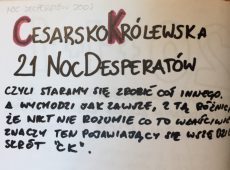 NOC DESPERATÓW 2003
CESARSKOKRÓLEWSKA
21 NOCDESPERATÓW
CZYLI STARAMY SIĘ ZROBIĆ COŚ INNEGO.
A WYCHODZI JAK ZAWSZE, Z TĄ RÓŻNICĄ
ŻE NIKT NIE ROZUMIE CO TO WŁAŚCIWIE
ZNACZY TEN POJAWIAJĄCY SIĘ WSZĘDZIE
SKRÓT "CK".